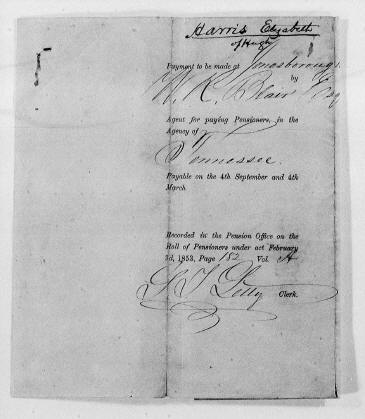 Harris Elizabeth
of Hugh
Payment to be made at Jonesborough
by
W. K. Blair Esq
Agent for paying Pensioners, in the
Agency of
Tennessee.
Payable on the 4th September and 4th
March
Recorded in the Pension Office on the
Roll of Pensioners under act February
3d, 1853, Page 182 Vol. A
Clerk.